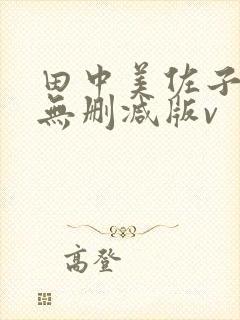 田中美佐子
無删减版v
高登